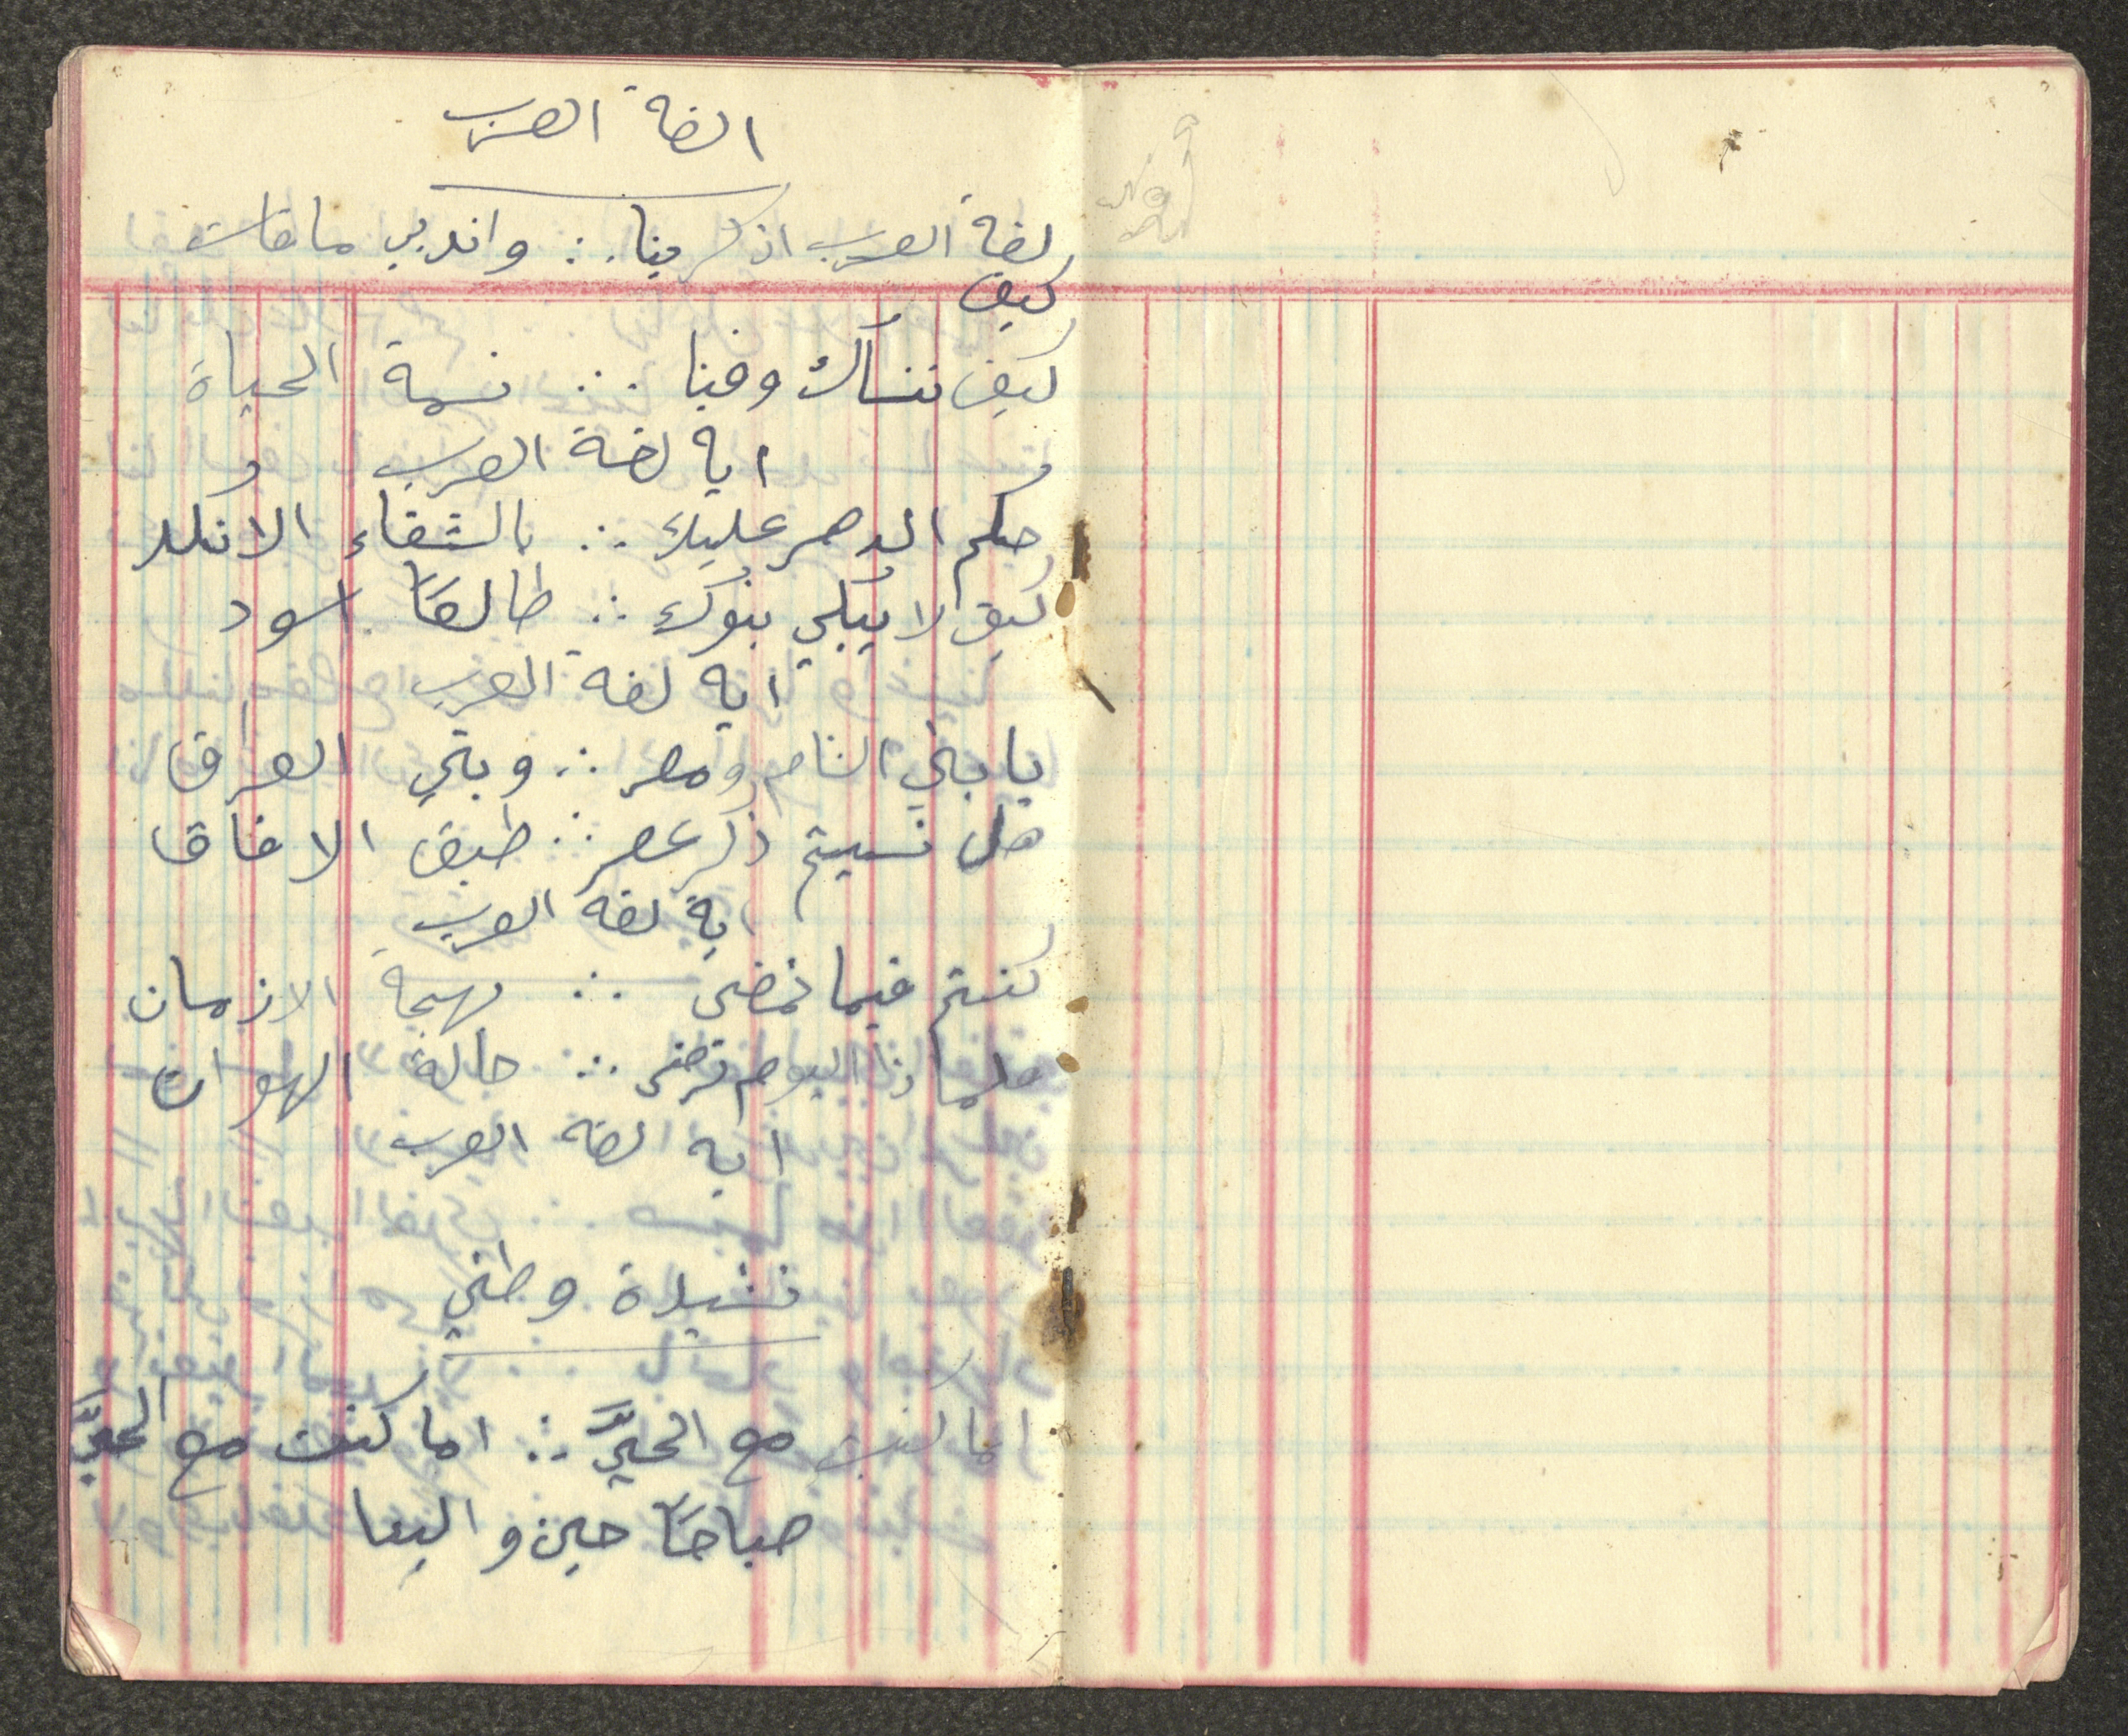 الغة العرب
لغة العرب اذكرينا ∴ واندبي ما فات
كيف
كيف ننساك وفينا ∴ نسمة الحياة
ايه لغة العرب
حكم الدهر عليك ∴ بالشقاء الانكد
كيف لا يبكي بنوك ∴ طالعاً اسود
ايه لغة العرب
يا بني الشام ومصر ∴ وبني العراق
هل نسيتم ذكر عصر ∴ طبق الافاق
ايه لغة العرب
كنتم فيما مضى ∴ بهجة الازمان
فلماذا اليوم نرضى ∴ حالة الهوان
ايه لغة العرب
نشيدة وطني
اما كنت مع الحيِّ ∴ اما كنت مع الحيِّ
صباحاً حين والينا